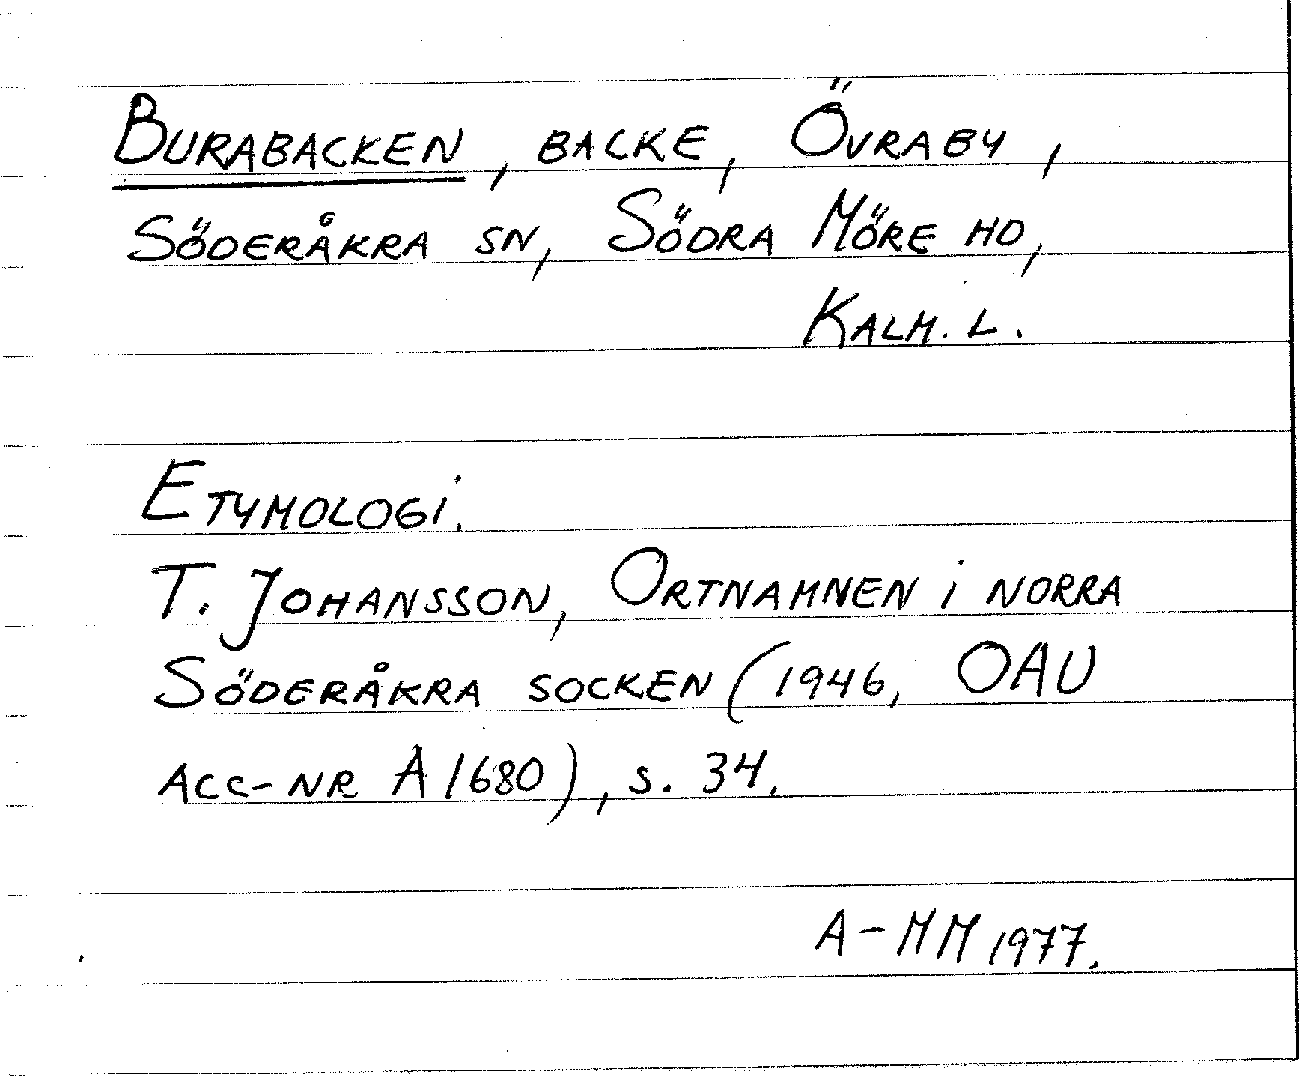 BURABACKEN, BACKE, ÖVRABY,
SÖDERÅKRA SN, SÖDRA MÖRE HD,
KALM. L.
ETYMOLOGI.
T. JOHANSSON, ORTNAMNEN i NORRA
SÖDERÅKRA SOCKEN (1946, OAU
ACC-NR A 1680), s. 34.
A-MM 1977.